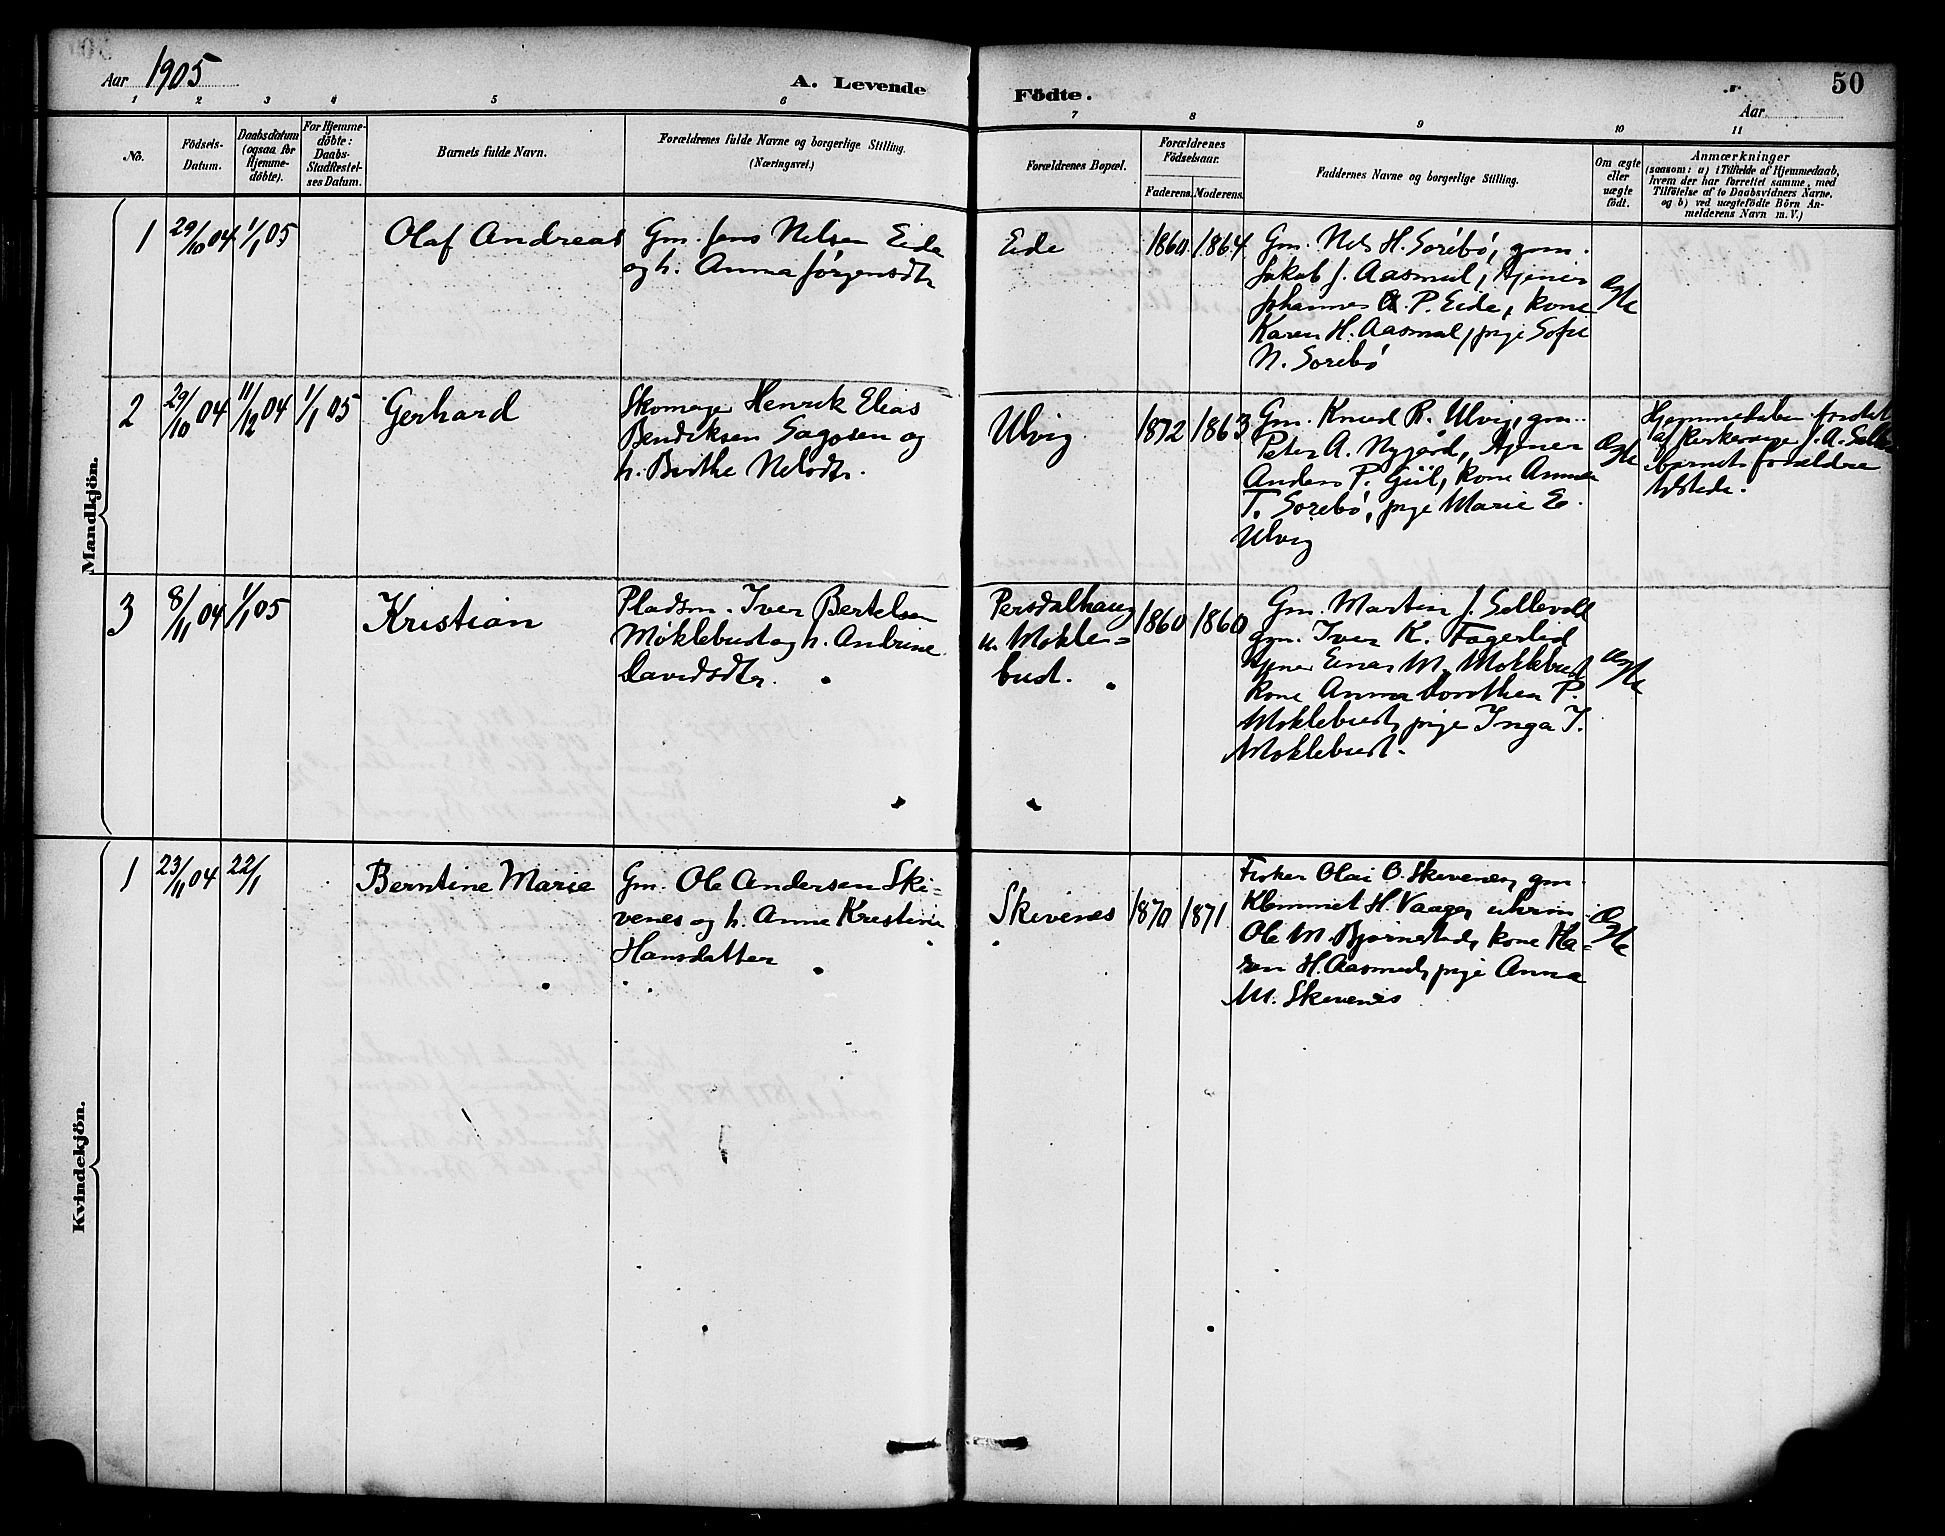 Aar 1905
A. Levende
Födte.
Aar
50
1 2 3 4 5 6 7 8 9 10 11
No.
Födsels-
Datum.
Daabsdatum
(ogsaa for
Hjemme-
döbte).
For Hjemme-
döbte:
Daabs-
Stadfæstel-
ses Datum.
Barnets fulde Navn.
Forældrenes fulde Navne og borgerlige Stilling.
(Næringsvei.)
Forældrenes Bopæl.
Forældrenes
Födselsaar.
Faderens. Moderens.
Faddernes Navne og borgerlige Stilling.
Om ægte
eller
uægte
födt.
Anmærkninger
(saasom: a) i Tilfælde af Hjemmedaab,
hvem der har forrettet samme, med
Tilföielse af to Daabsvidners Navne.
og b) ved uægtefödte Börn An-
melderens Navn m. V.)
Mandkjön.
1
29/10 04
1/1 05
Olaf Andreas
Gm. Jens Nelsen Eide
og h. Anna Jørgensdtr
Eide
1860
1864
Gm. Nels H. Sorebø, gm.
Jakob J. Aasmul, tjener
Johannes P. Eide, kone
Karen H. Aasmul, pige Sofie
N. Sorebø
ægte
2
29/10 04
11/12 04
1/1 05
Gerhard
Skomager Henrik Elias
Bendiksen Sagosen og
h. Berthe Nelsdtr.
Ulvig
1872
1863
Gm. Knud R. Ulvig, gm.
Peter A. Nygård, tjener
Anders P. Gül, kone Anna
T. Sorebø, pige Marie E.
Ulvig
ægte
Hjemmedaben
af kirkesanger J. A.
barnets forældre
tilstede.
3
8/11 04
1/1 05
Kristian
Pladsm. Iver Bertelsen
Møklebust og h. Andrine
Davidsdtr.
Persdalhaug
u. Mokle-
bust.
1860
1860
Gm. Martin J. Sollevold
gm. Iver K. Fagerlid
tjener Einar M. Moklebust
kone Anna Dorothea P.
Moklebust, pige Inga I.
Moklebust.
ægte
Kvindekjön.
1
23/11 04
22/1
Berntine Marie
Gm. Ole Andersen Ski-
venes og h. Anne Kristine
Hansdatter
Skivenes
1870
1871
Fisker Olai O. Skevenes, gm.
Klemmet H. Vaage,
Ole M. Bjørnestad, kone Ka-
ren H. Aasmul, pige Anna
M. Skevenes
ægte